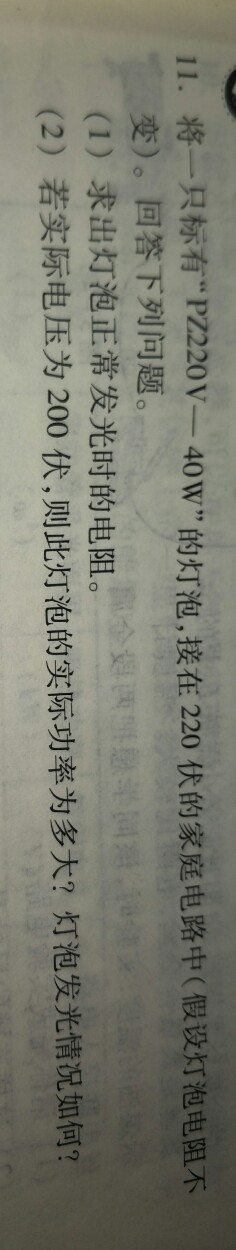 11. 将一只标有“PZ220V—40W”的灯泡,接在 220 伏的家庭电路中(假设灯泡电阻不
变)。回答下列问题。
(1) 求出灯泡正常发光时的电阻。
(2) 若实际电压为 200 伏,则此灯泡的实际功率为多大? 灯泡发光情况如何?